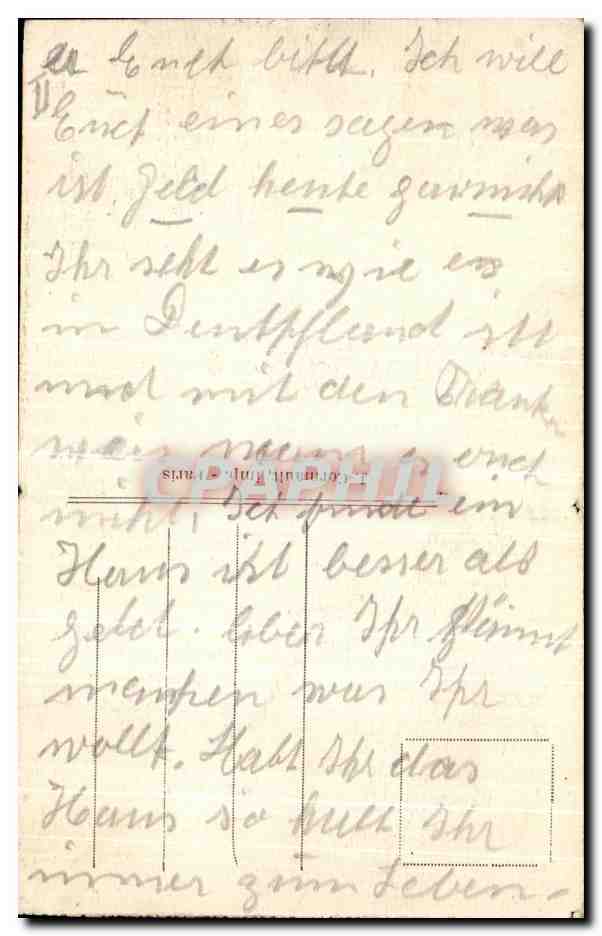 Euch bittet. Ich will
II
Euch eines sagen was
ist Geld heute garnichts
Ihr seht es wie es
in Deutschland ist
und mit den Frank
weis man es auch
nicht. Ich finde ein
Haus ist besser als
Geld. Aber Ihr könnt
machen was Ihr
wollt. Habt Ihr das
Haus so habt Ihr
immer zum Leben -
CPAPHIL
J. Cormault, Imp. - Paris